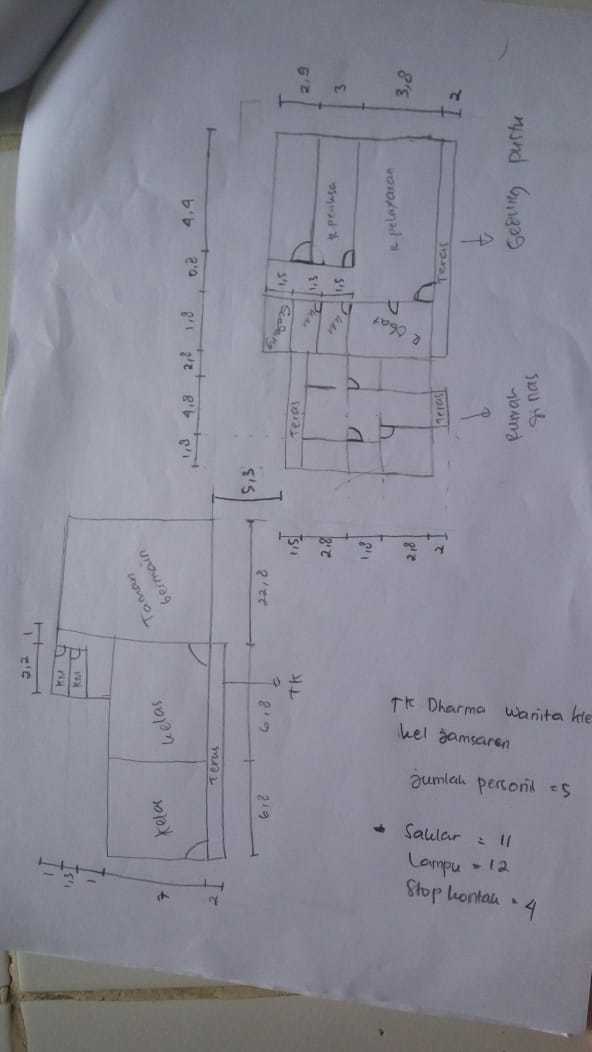 2,9
3
3,8
2
4,4
0,8
1,8
2,8
4,8
1,8
R periksa
R pelayanan
Teras
Gedung pustu
1,5
1,3
1,5
Gudang
KM
KM
R Obat
Teras
Teras
Rumah dinas
1,5
2,8
1,8
2,8
2
5,3
Taman bermain
22,8
1
2,2
KM
KM
Kelas
Kelas
Teras
TK
6,8
6,8
1
1,3
1
7
2
TK Dharma Wanita
kel Jamsaren
jumlah personil = 5
Saklar = 11
Lampu = 12
Stop kontak = 4